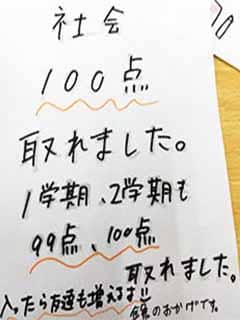 社会
100点
取れました。
1学期、2学期も
99点、100点
取れました。
入ったら友達も増えるよ!!
鏡のおかげです。